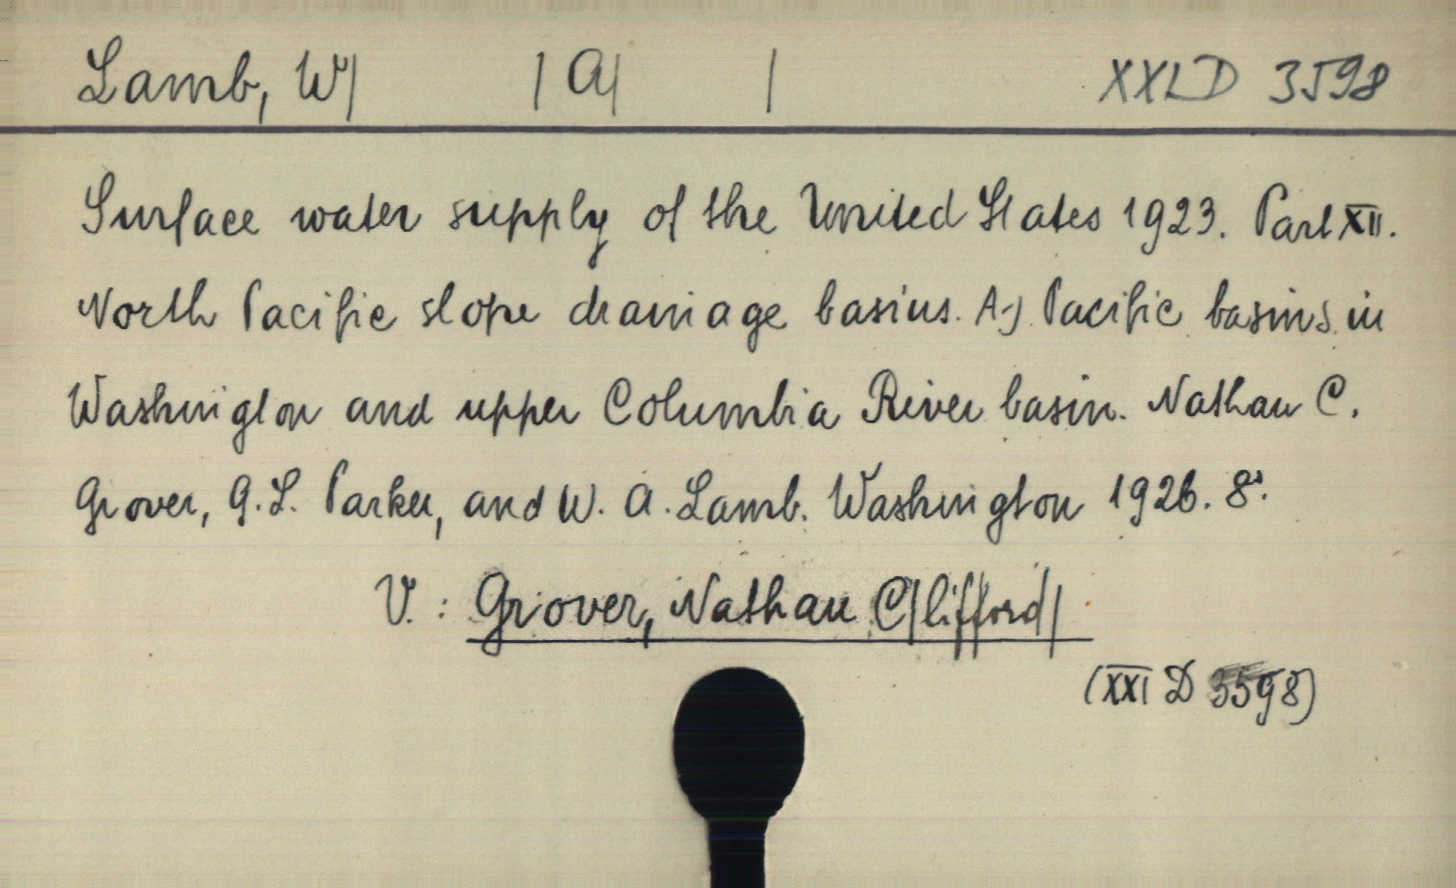 Lamb, W| |A| | XXI D 3598
Surface water supply of the United States 1923. Part XII.
North Pacific slope drainage basins. A.) Pacific basins in
Washington and upper Columbia River basin. Nathan C.
Grover, G. L. Parker, and W. A. Lamb. Washington 1926. 8°.
V.: Grover, Nathan C|lifford|
(XXI D 3598)